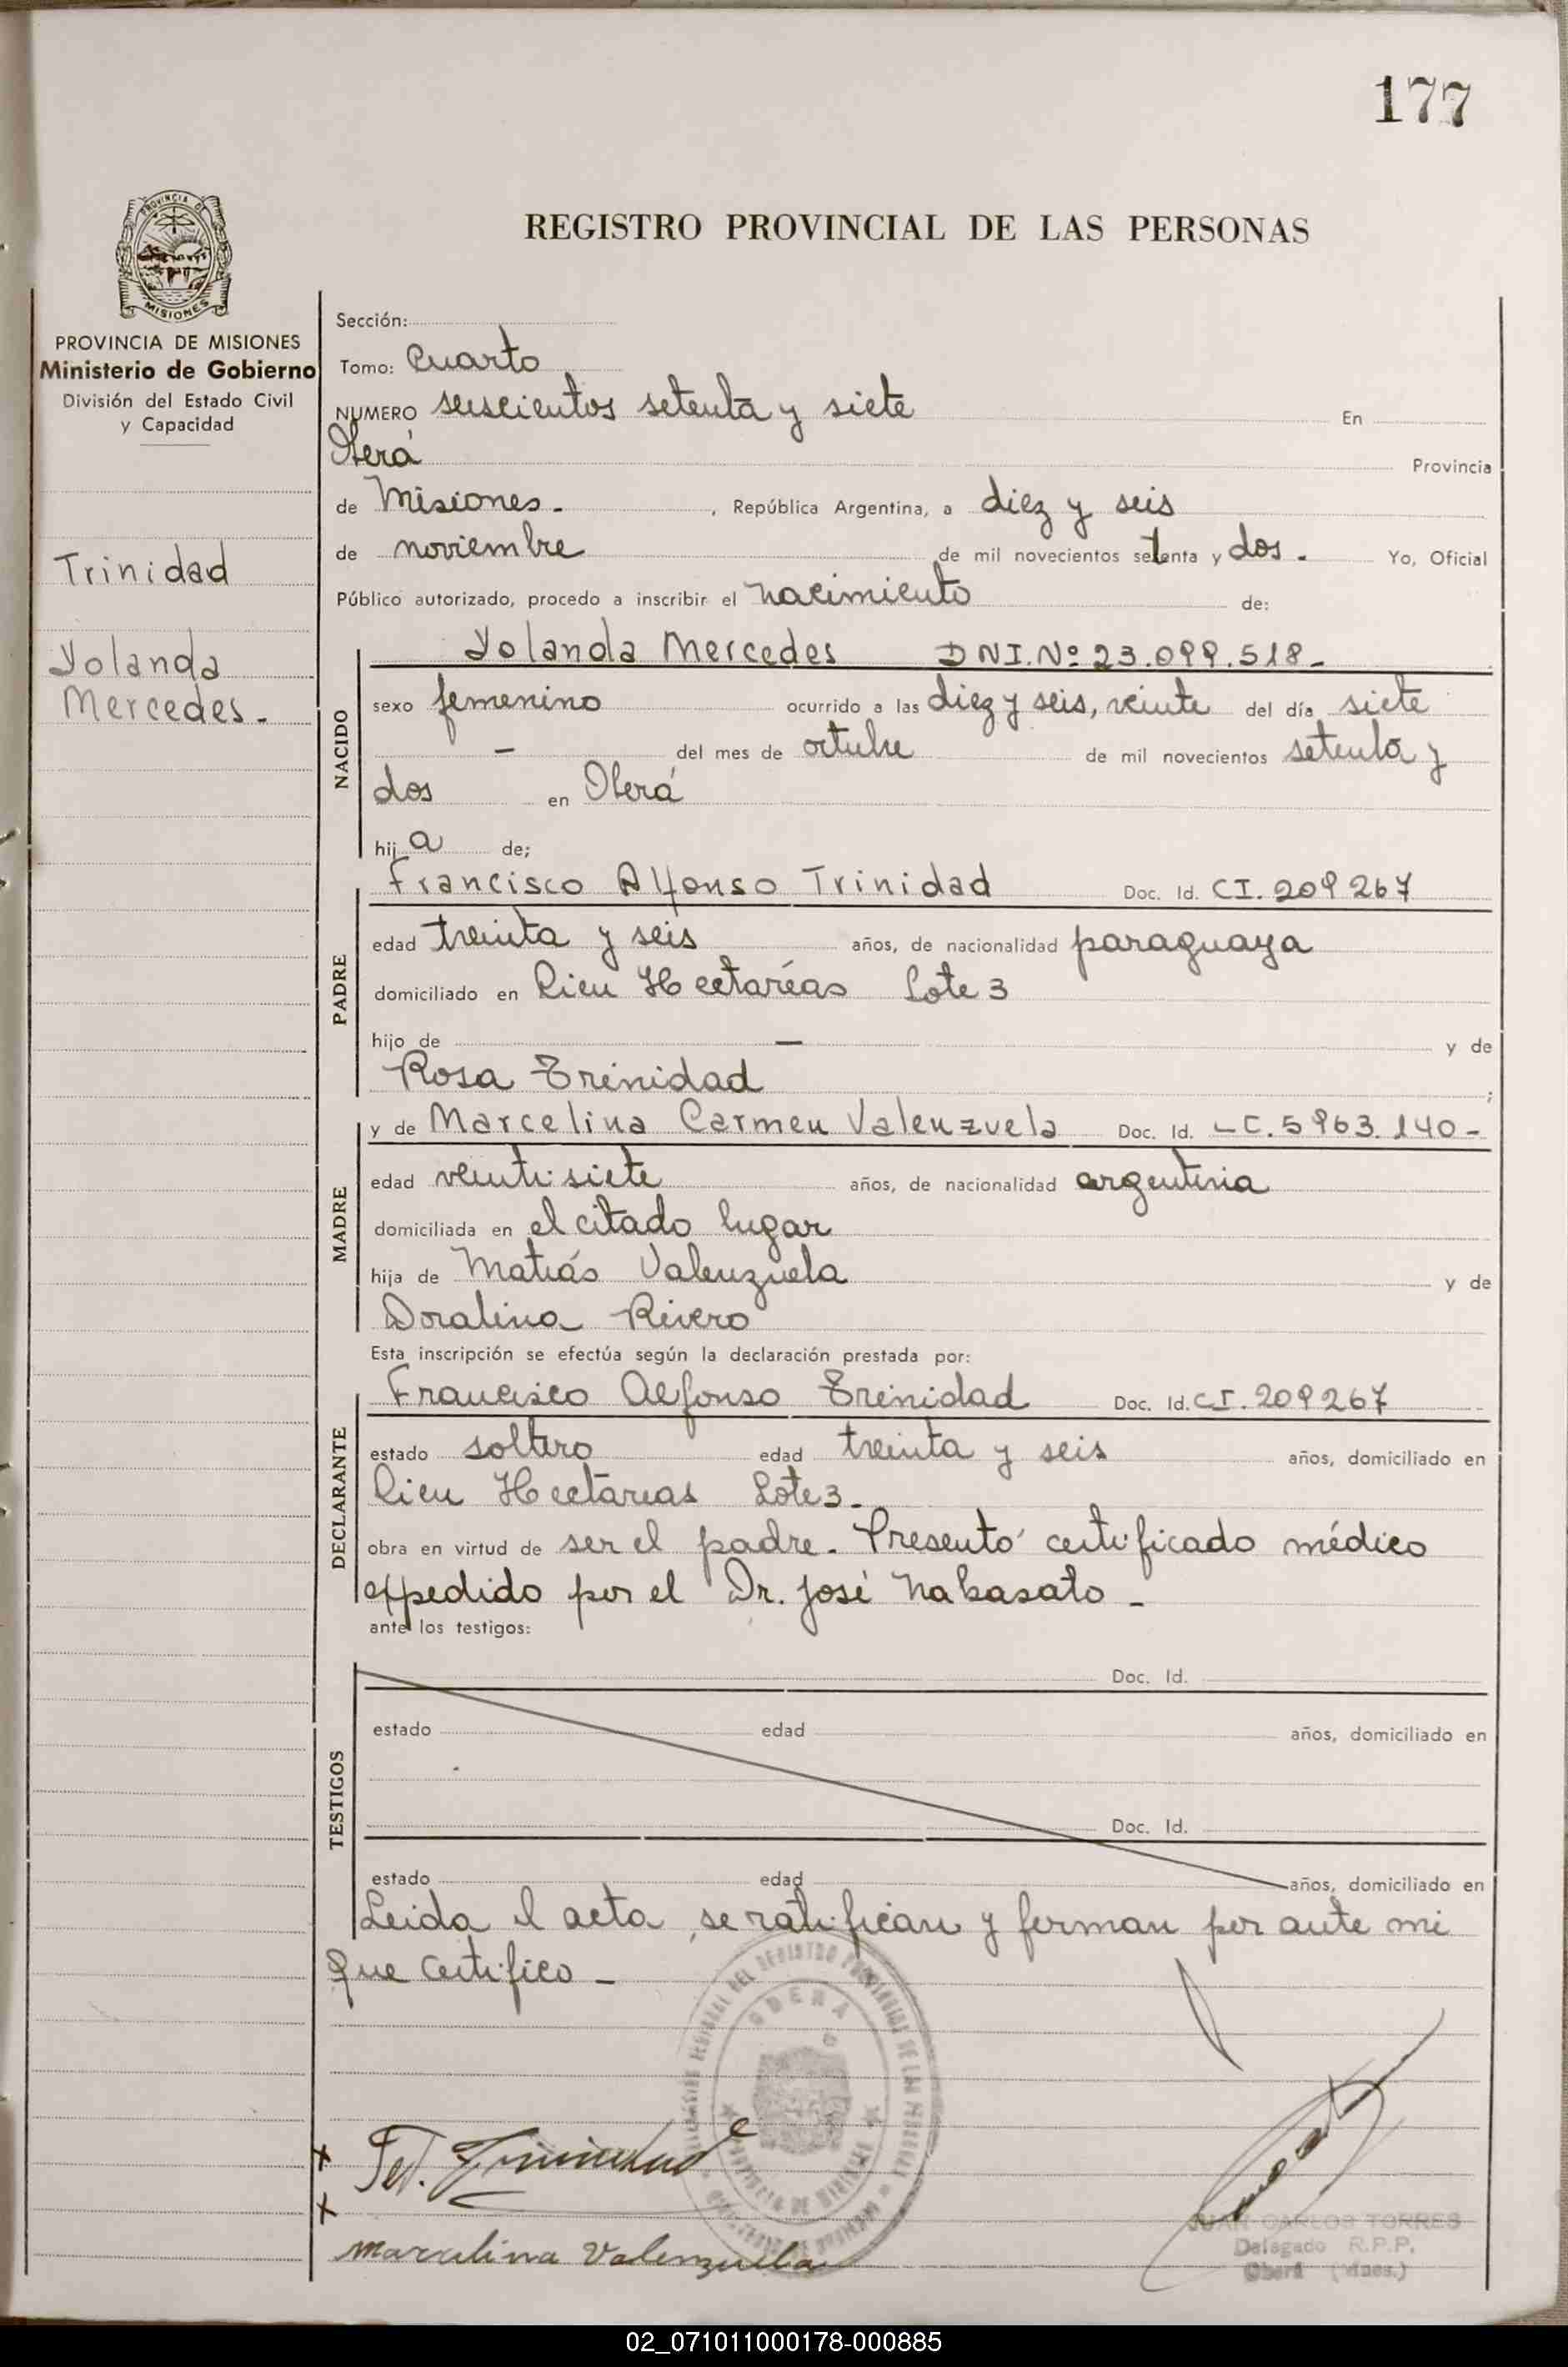 177
REGISTRO PROVINCIAL DE LAS PERSONAS
PROVINCIA DE MISIONES
Ministerio de Gobierno
División del Estado Civil
y Capacidad
Trinidad
Yolanda
Mercedes.
Sección:
Tomo: Cuarto
NUMERO seiscientos setenta y siete En
Oberá Provincia
de Misiones. , República Argentina, a diez y seis
de noviembre de mil novecientos setenta y dos. Yo, Oficial
Público autorizado, procedo a inscribir el nacimiento de:
NACIDO
Yolanda Mercedes DNI. Nº 23.099.518-
sexo femenino ocurrido a las diez y seis, veinte del día siete
- del mes de octubre de mil novecientos setenta y
dos en Oberá
hij a de;
PADRE
Francisco Alfonso Trinidad Doc. Id. CI. 209267
edad treinta y seis años, de nacionalidad paraguaya
domiciliado en Cien Hectaréas Lote 3
hijo de — y de
Rosa Trinidad ;
MADRE
y de Marcelina Carmen Valenzuela Doc. Id. LC. 5963.140-
edad veintisiete años, de nacionalidad argentina
domiciliada en el citado lugar
hija de Matías Valenzuela y de
Doralina Rivero
Esta inscripción se efectúa según la declaración prestada por:
DECLARANTE
Francisco Alfonso Trinidad Doc. Id. CI. 209267
estado soltero edad treinta y seis años, domiciliado en
Cien Hectareas Lote 3.
obra en virtud de ser el padre. Presentó certificado médico
expedido por el Dr. José Nakasato -
ante los testigos:
TESTIGOS
Doc. Id.
estado edad años, domiciliado en
Doc. Id.
estado edad años, domiciliado en
Leida el acta, se ratifican y firman por ante mi
que certifico -
OBERA
Trinidad
Marcelina Valenzuela
JUAN CARLOS TORRES
Delegado R.P.P.
Oberá (Mnes.)
02_071011000178-000885